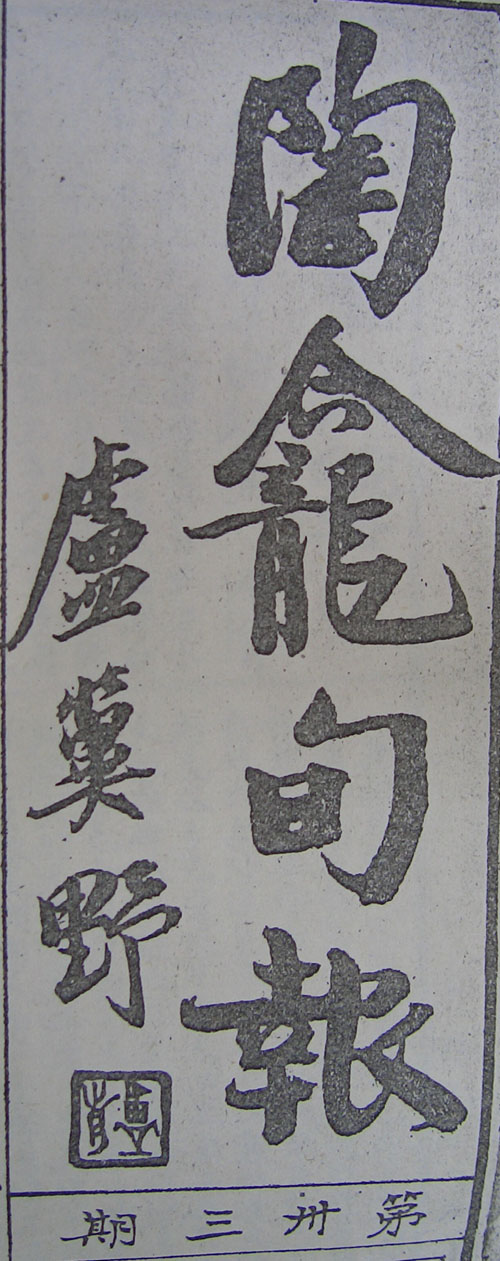 陶龕旬報
盧冀野
第卅三期